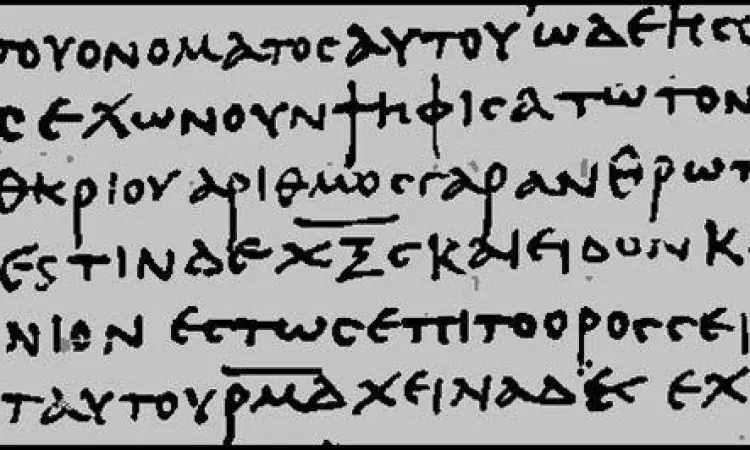 ΤΟΥΟΝΟΜΑΤΟϹΑΥΤΟΥΩΔΕΗϹΟ
ϹΕΧΩΝΟΥΝΨΗΦΙϹΑΤΩΤΟΝ
ΘΗΡΙΟΥΑΡΙΘΜΟϹΓΑΡΑΝΘΡΩΠ
ΕϹΤΙΝΔΕΧ̅Ξ̅Ϛ̅ΚΑΙΕΙΔΟΝΚ
ΝΙΟΝΕϹΤΩϹΕΠΙΤΟΟΡΟϹϹΕΙ
ΤΑΥΤΟΥΡ̅Μ̅Δ̅ΧΕΙΛΙΑΔΕϹΕΧ